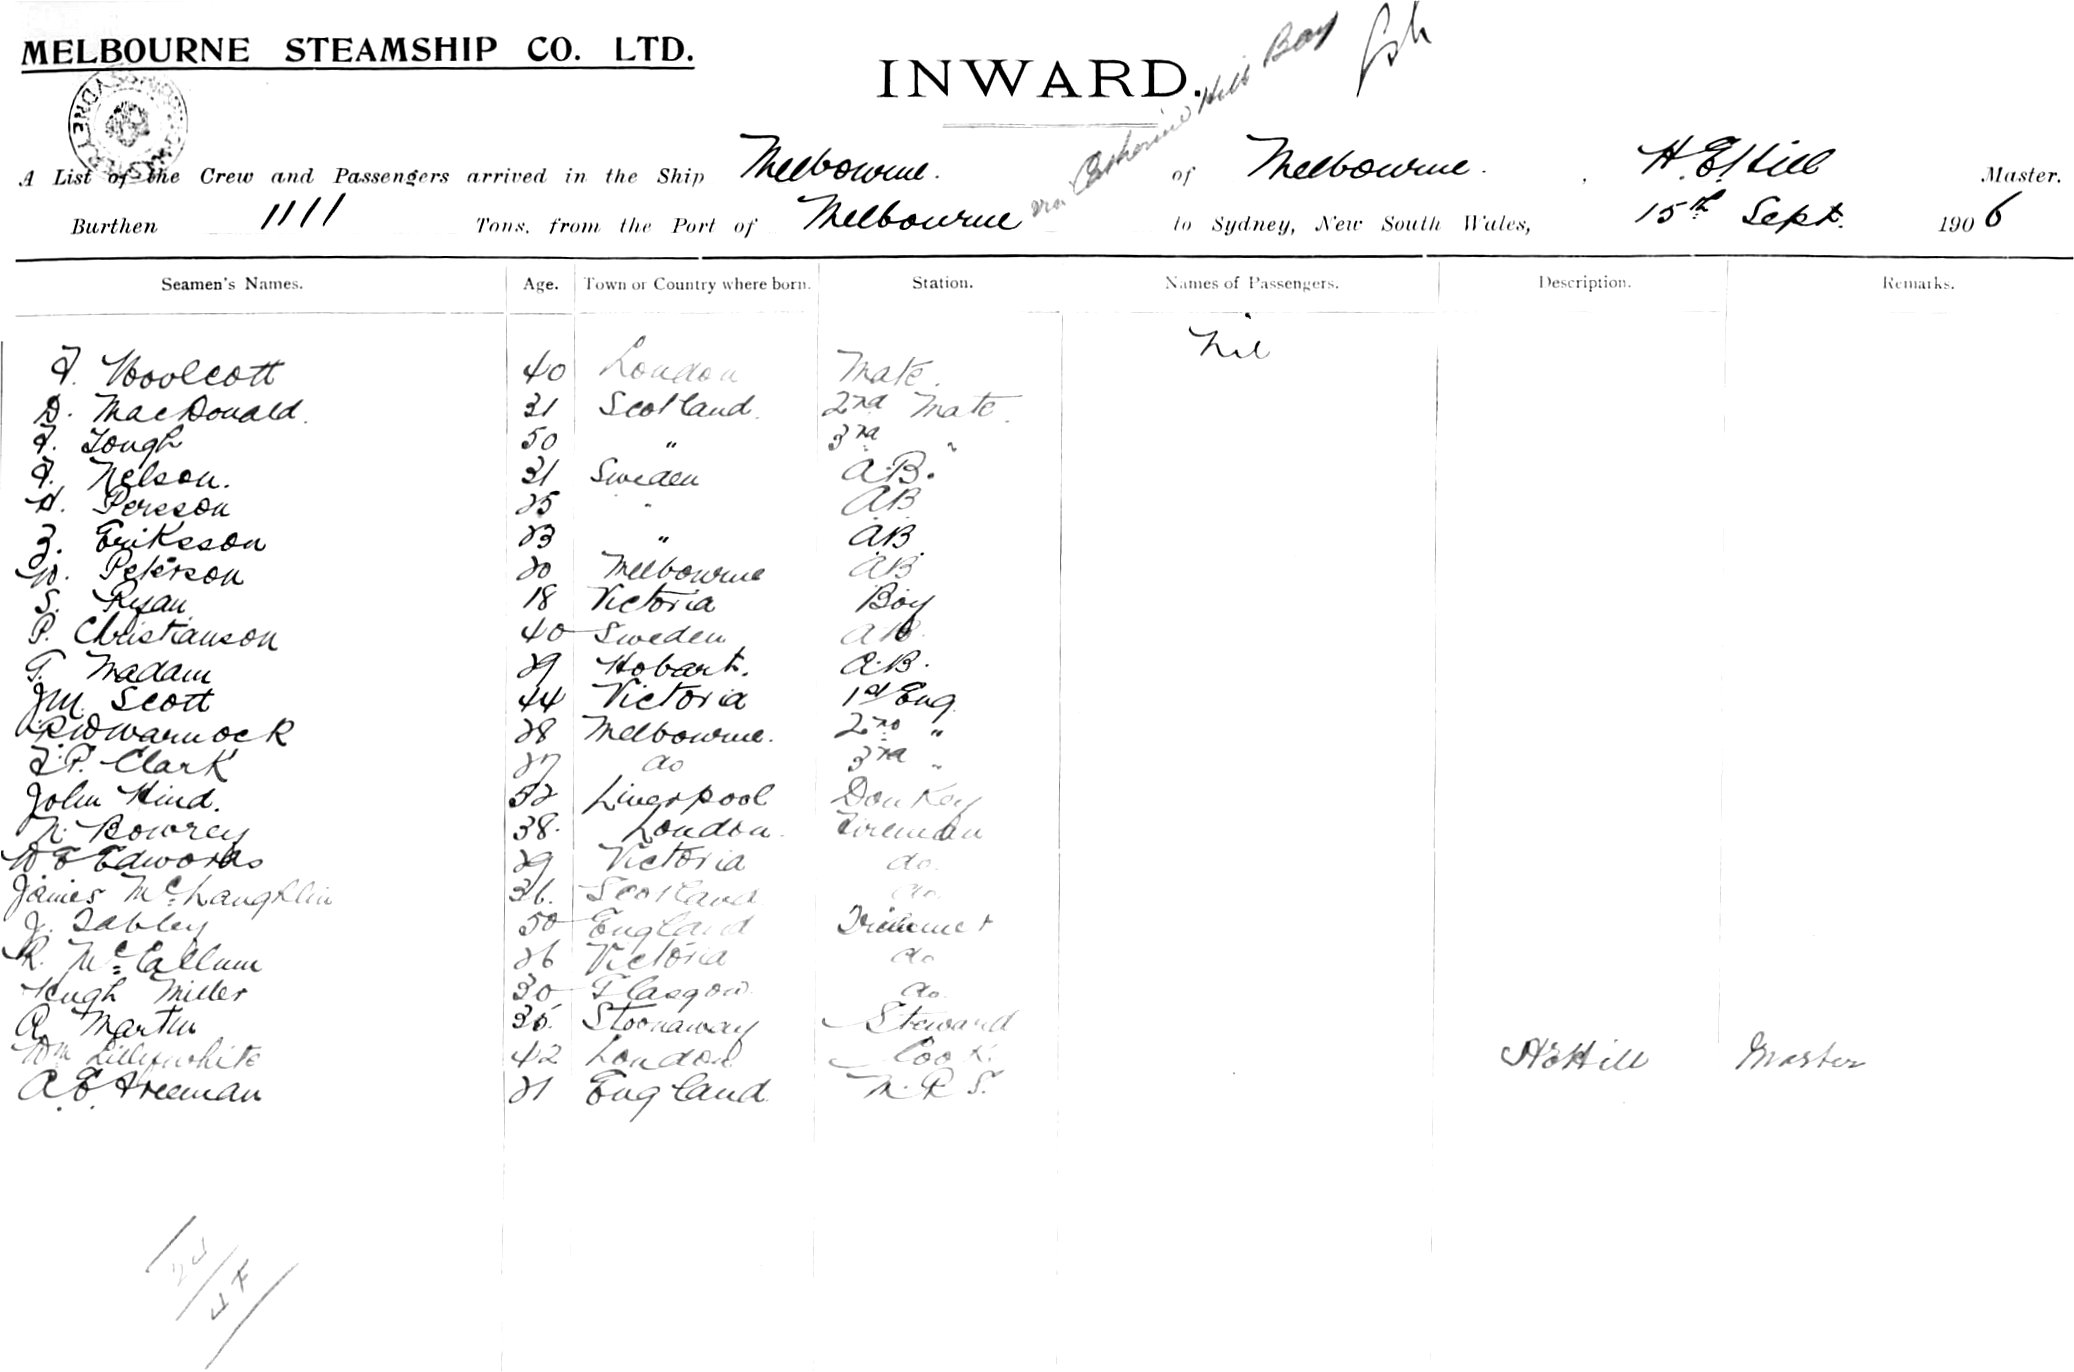 MELBOURNE STEAMSHIP CO. LTD.
INWARD.
via Catherine Hill Bay
A List of the Crew and Passengers arrived in the Ship Melbourne. of Melbourne. , H. E. Hill Master.
Burthen 1111 Tons, from the Port of Melbourne to Sydney, New South Wales, 15th Sept. 1906
Seamen's Names. Age. Town or Country where born. Station. Names of Passengers. Description. Remarks.
Nil
F. Woolcott 40 London Mate.
D. MacDonald. 31 Scotland. 2nd Mate.
F. Tough 50 " 3rd "
F. Nelson. 31 Sweden A.B.
H. Persson 25 " AB
Z. Eriksson 23 " AB.
W. Peterson 20 Melbourne AB
S. Ryan 18 Victoria Boy
P. Christianson 40 Sweden AB.
G. Madam 29 Hobart. A.B.
JM. Scott 44 Victoria 1st Eng.
RW Warnock 28 Melbourne. 2nd "
F.P. Clark 27 do 3rd "
John Hind. 52 Liverpool Donkey
N. Bowrey 38. London. Fireman
W E Edwards 29 Victoria do.
James McLaughlin 36. Scotland do.
J. Tabley 50 England Trimmer
R. McCallum 26 Victoria do
Hugh Miller 30 Glasgow. do.
A. Martin 35. Stornaway Steward
Wm Lillywhite 42 London Cook.
HEHill Master
A. E. Freeman 21 England. M.R.S.